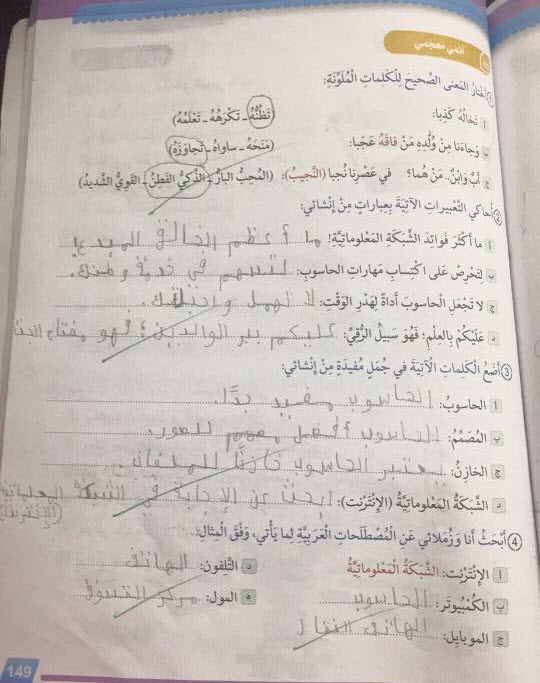 أُغني معجمي
① أختار المَعنى الصَّحيحَ لِلْكَلِماتِ المُلَوَّنَةِ:
أ تَخالُهُ كَذِبا: (تَظُنُّهُ - تَكْرَهُهُ - تَعْلَمُهُ)
ب وَجاءَنا مِنْ وُلْدِهِ مَنْ فاقَهُ عَجَبا: (مَنَحَهُ - ساواهُ - تَجاوَزَهُ)
ج أَبٌ وَابْنٌ.. مَنْ هُما؟ في عَصْرِنا نُجبا (النَّجيبُ): (المُحِبُّ البارُّ - الذَّكِيُّ الفَطِنُ - القَوِيُّ الشَّديدُ)
② أُحاكي التَّعْبيراتِ الآتِيَةَ بِعِباراتٍ مِنْ إِنْشائي:
أ ما أَكْثَرَ فَوائِدَ الشَّبَكَةِ المَعْلوماتِيَّةِ! ما أعظم الخالق المبدع!
ب لِتَحْرِصْ عَلى اكْتِسابِ مَهاراتِ الحاسوبِ: لتسهم في خدمة وطنك.
ج لا تَجْعَلِ الْحاسوبَ أَداةً لِهَدْرِ الوَقْتِ: لا تهمل واجباتك.
د عَلَيْكُمْ بِالعِلْمِ؛ فَهُوَ سَبيلُ الرُّقِيِّ: عليكم ببر الوالدين؛ فهو مفتاح
③ أَضَعُ الْكَلِماتِ الْآتِيَةَ في جُمَلٍ مُفيدَةٍ مِنْ إِنْشائي:
أ الحاسوبُ: الحاسوب مفيد جدًا.
ب المُصَمِّمُ: الحاسوب أفضل مصمم للصور.
ج الخازِنُ: يعتبر الحاسوب خازنًا للملفات.
د الشَّبَكَةُ المَعْلوماتِيَّةُ (الإِنْتَرْنِت): ابحث عن الإجابة في الشبكة المعلوماتية
(الإنترنت)
④ أَبْحَثُ أَنا وَزُمَلائي عَنِ الْمُصْطَلَحاتِ الْعَرَبِيَّةِ لِما يَأْتي، وَفْقَ الْمِثالِ:
أ الإِنْتَرْنِت: الشَّبَكَةُ الْمَعْلوماتِيَّةُ
د التِّلِفون: الهاتف
ب الكُمْبْيوتَر: الحاسوب
ه المول: مركز التسوق
ج الموبايل: الهاتف النقال
149